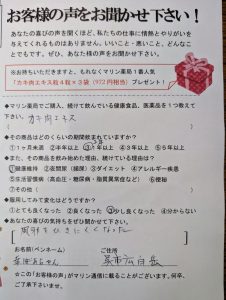 お客様の声をお聞かせ下さい！
あなたの喜びの声を聞くほど、私たちの仕事に情熱とやりがいを
与えてくれるものはありません。いいこと・悪いこと、どんなこ
とでもです。ぜひ、あなた様の声をお聞かせ下さい。
※お持ちいただきますと、もれなくマリン薬局1番人気
「カキ肉エキス粒4粒×3袋（972円相当）プレゼント！
◆マリン薬局でご購入、続けて飲んでいる健康食品、医薬品を1つ教えて
下さい。
( カキ肉エキス )
◆その商品はどのくらいの期間飲まれていますか？
①1ヶ月未満 ②半年以上 ③1年以上 ④3年以上 ⑤5年以上
◆また、その商品を飲み始めた理由、続けている理由は？
①健康維持 ②夜間尿（頻尿） ③ダイエット ④アレルギー疾患
⑤生活習慣病（高血圧・糖尿病・脂質異常症など） ⑥便秘
⑦その他( )
◆服用してみて変化がどうですか？
①とても良くなった ②良くなった ③少し良くなった ④分からない
◆あなたの喜びの気持ちをぜひ聞かせて下さい。
[ 風邪をひきにくくなった ]
お名前(ペンネーム) ご住所
呉市広
☆この「お客様の声」がマリン通信に載ることがございます。何卒、
ご了承下さいませ。